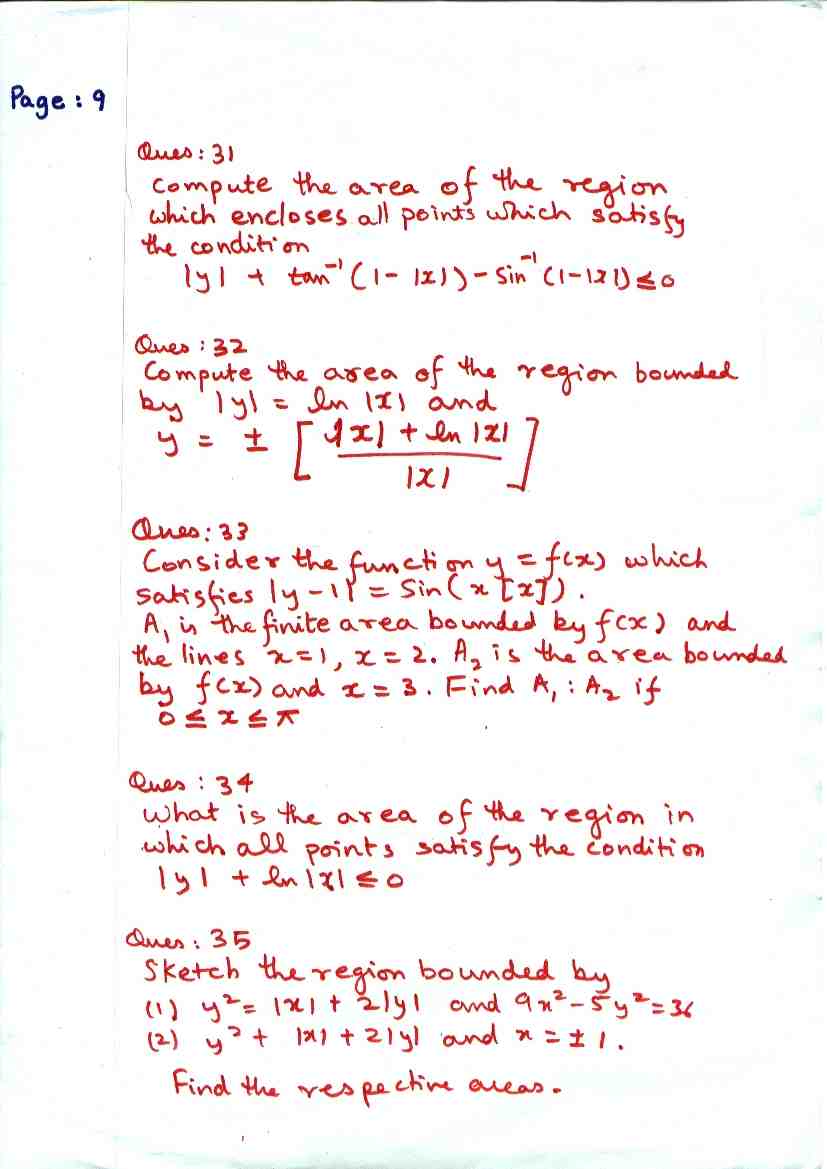 Page : 9
Ques : 31
Compute the area of the region
which encloses all points which satisfy
the condition
|y| + tan⁻¹ (1 - |x|) - Sin⁻¹ (1-|x|) ≤ 0
Ques : 32
Compute the area of the region bounded
by |y| = ln |x| and
y = ± [ |x| + ln |x| / |x| ]
Ques : 33
Consider the function y = f(x) which
satisfies |y - 1| = Sin ( x [x] ) .
A₁ is the finite area bounded by f(x) and
the lines x = 1, x = 2. A₂ is the area bounded
by f(x) and x = 3. Find A₁ : A₂ if
0 ≤ x ≤ π
Ques : 34
What is the area of the region in
which all points satisfy the condition
|y| + ln |x| ≤ 0
Ques : 35
Sketch the region bounded by
(1) y² = |x| + 2|y| and 9x² - 5y² = 36
(2) y² + |x| + 2|y| and x = ± 1 .
Find the respective areas .